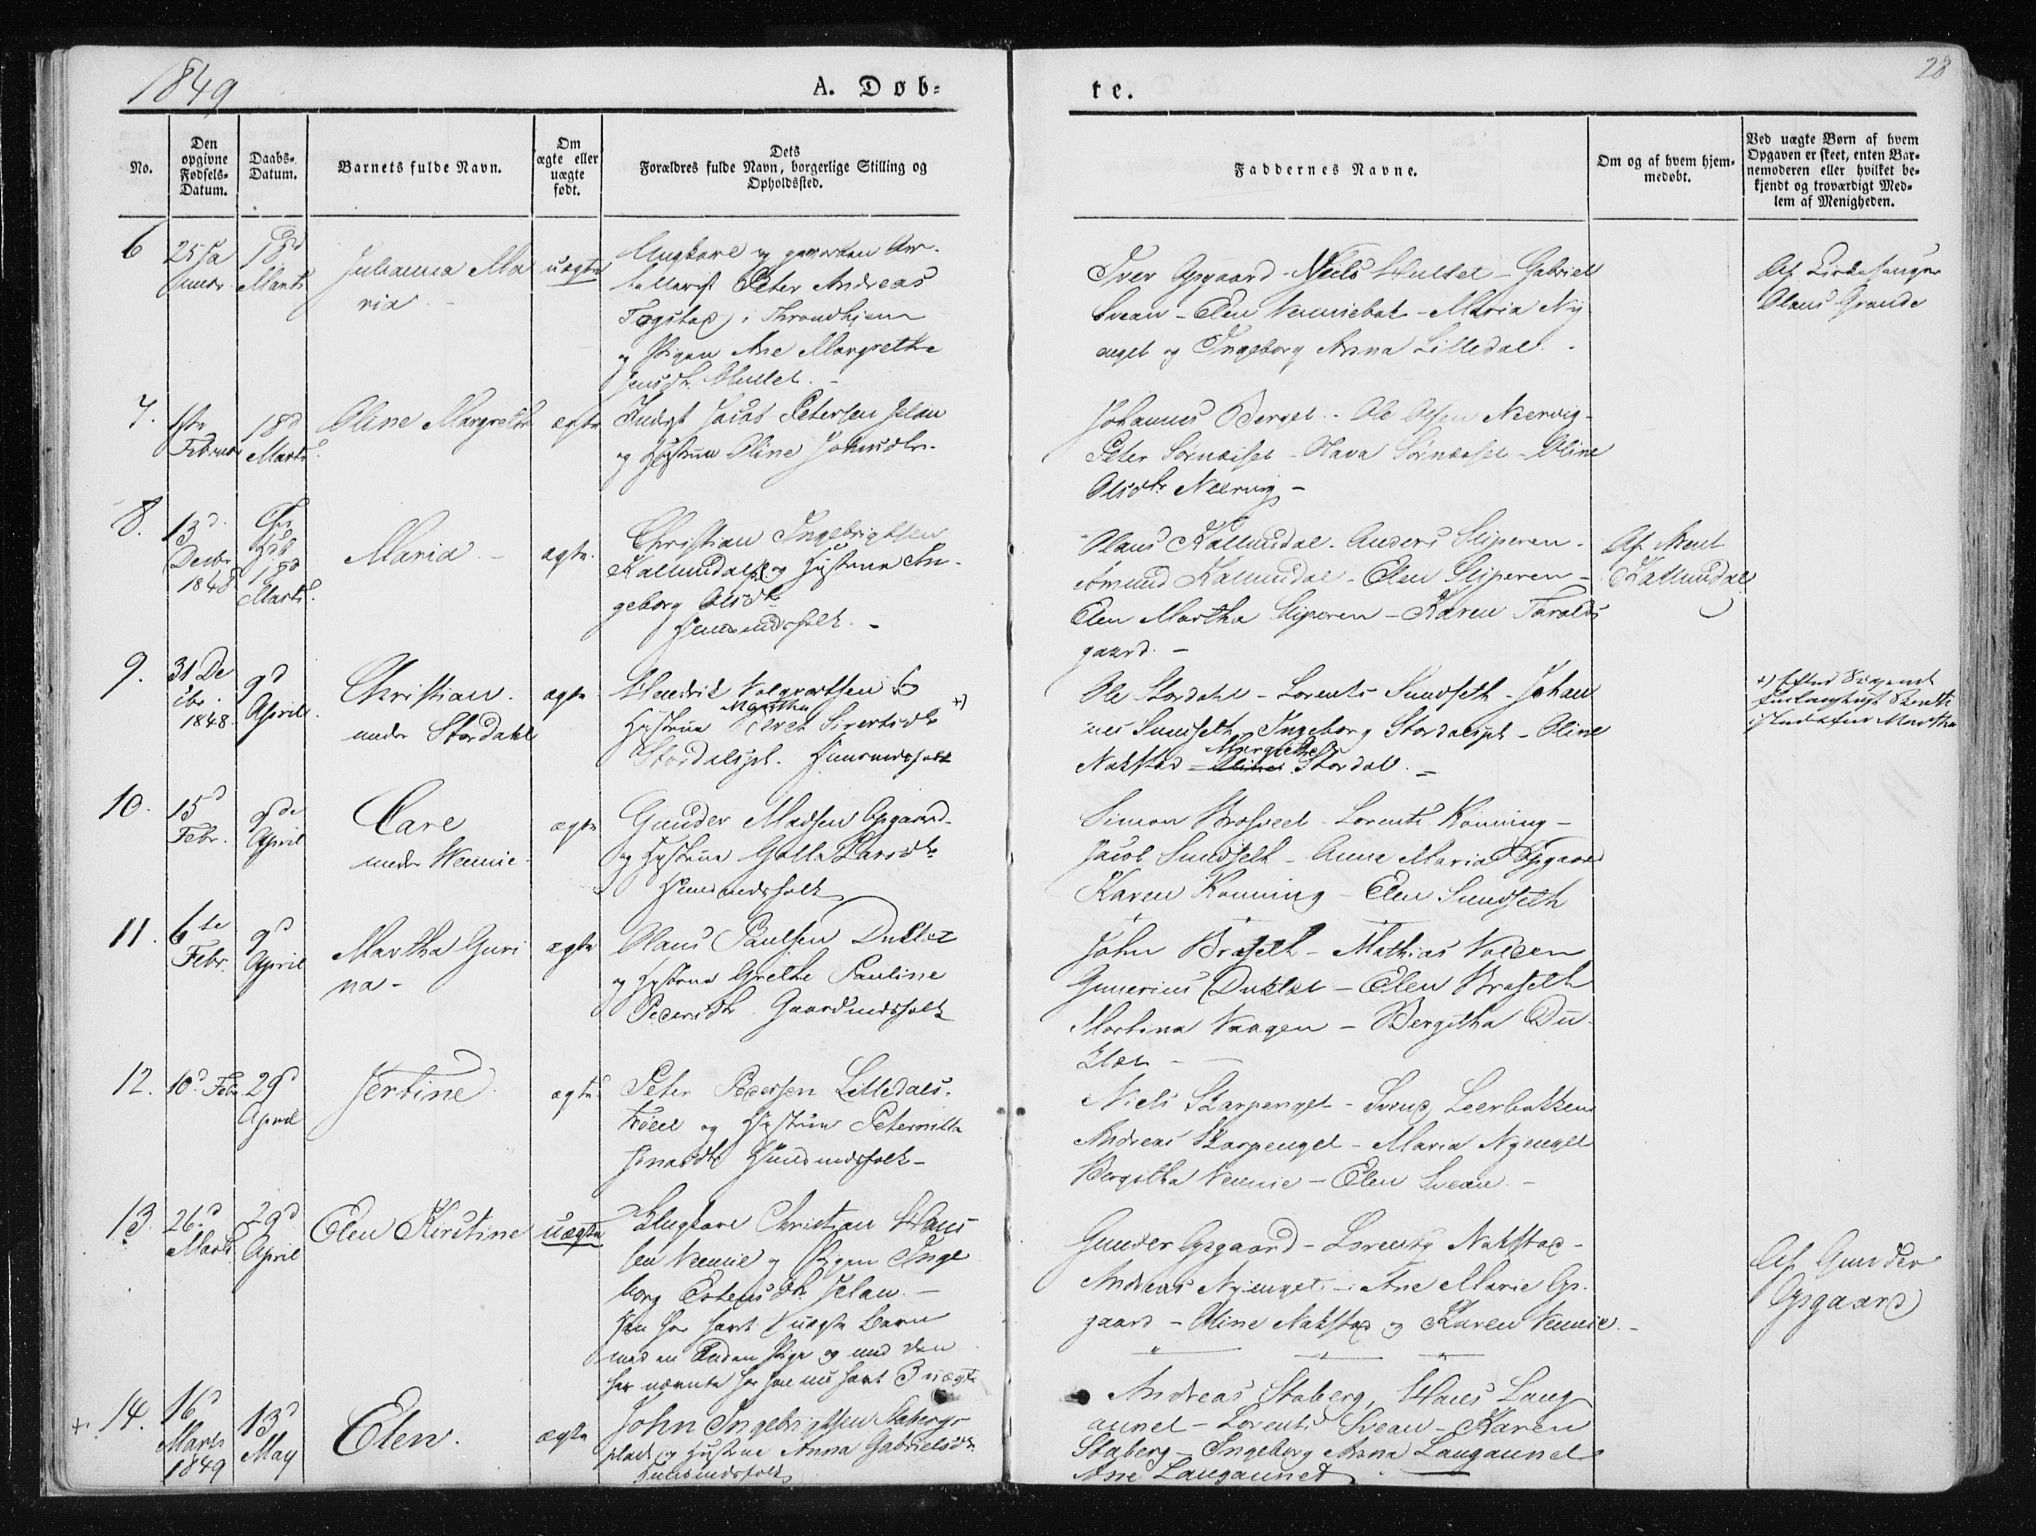 1849
A. Døb=
te.
28
No.
Den opgivne Fødsels-Datum.
Daabs-Datum.
Barnets fulde Navn.
Om ægte eller uægte født.
Dets Forældres fulde Navn, borgerlige Stilling og Opholdssted.
Faddernes Navne.
Om og af hvem hjemmedøbt.
Ved uægte Børn af hvem Opgaven er skeet, enten Barnemoderen eller hvilket bekjendt og troværdigt Medlem af Menigheden.
6
25 Ja
nuar
18d
Marts
Julianna Ma
ria
uægte
Ungkarl og
Peter Andreas
i Throndhjem
og Pigen Ane Margrethe
Jensdtr. Hullet.
Iver Opgaard - Neils Hullet - Gabriel
Svean - Elen Venniebak - Maria Ny
enget og Ingeborg Anna Lilledal.
Af Kirkesanger
Olaus Grande
7.
1ste
Februar
18d
Marts
Oline Margrethe
ægte
Jacob Petersen Jelan
og Hustrue Oline Johnsdtr.
Johannes Berget - Ole Olsen Neervig -
Peter Sørnæsset - Hava Sørnæsset - Oline
Olsdtr Neervig -
8.
13d
Decbr
1848
18d
Marts.
Maria -
ægte.
Christian Ingebrigtsen
Kallundal og Hustrue In-
geborg Olsdtr
Huusmandsfolk. -
Olaus Kallundal. Anders Sliperen -
Amund Kallundal - Elen Sliperen -
Elen Martha Sliperen - Karen Taralds
gaard. -
Af Arent
Kallundal
9.
31 De
cbr.
1848.
9d
April.
Christian.
under Stordahl
ægte
Hendrik Volqvartsen &
Martha
Hustrue Sivertsdtr +)
Stordalspl. Huusmandsfolk
Ole Stordahl - Lorents Sundseth - Johan
nes Sundseth - Ingeborg Stordalspl - Oline
Margrethe
Nakstad - Stordal. -
+) Efter
istedetfor Martha
10.
15d
Febr.
9de
April
Care
under Wennie
ægte
Gunder Madsen Opgaard
og Hustrue Larsdtr
Huusmandsfolk
Simon Brosveet - Lorents Rønning -
Jacob Sundseth - Anne Maria Opgaard
Karen Rønning - Elen Sundseth
11.
6te
Febr.
9d
April
Martha Guri
na -
ægte
Olaus Paulsen Duklæt
og Hustrue Grethe Pauline
Pedersdtr. Gaardmandsfolk
John Braseth - Mathias Volden
Gunerius Duklæt - Elen Braseth
Martina Vaagen - Bergitha Du-
klæt -
12.
10d Febr
29d
April
Jertine
ægte
Peter Pedersen Lilledals-
og Hustrue Peternille
Jonasdtr Huusmandsfolk -
Niels Skarpenget - Svend Leerbakken
Andreas Skarpenget - Maria Nyenget
Bergitha Vennie - Elen Svean. -
13.
26d
Marts
29d
April
Elen Kirstine
uægte
Ungkarl Christian Han-
sen Vennie og Pigen Inge
borg Estensdtr. Jelan. -
Han har havt 1 uægte Barn
med en Anden Pige og med den
her nævnte har han nu havt 3 uægte
Gunder Opgaard - Lorents Nakstad -
Andreas Nyenget - Ane Marie Op-
gaard - Oline Nakstad og Karen Vennie. -
Af Gunder
Opgaard
+ 14.
16d
Marts
1849
13d
May
Elen.
ægte
John Ingebrigtsen Stabergs-
plads og Hustrue Anna Gabrielsdtr
Huusmandsfolk
Andreas Staberg, Hans Laug
aunet - Lorents Svean - Karen
Staberg - Ingeborg Anna Laugaunet
Ane Laugaunet